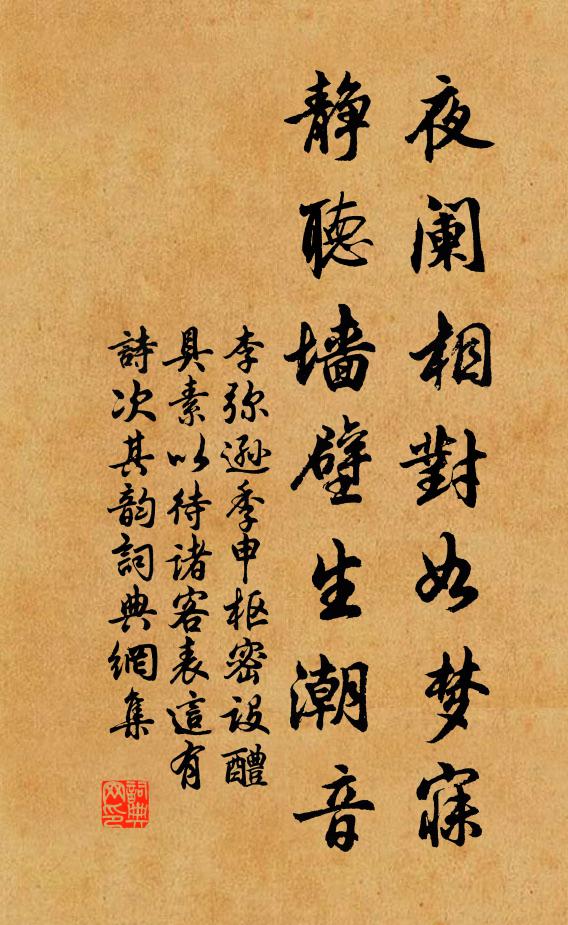 夜阑相對如梦寐
静聴墙壁生潮音
李弥遜季申枢密設醴
具素以待諸客表這有
詩次其韵詞典網集
詞典网印